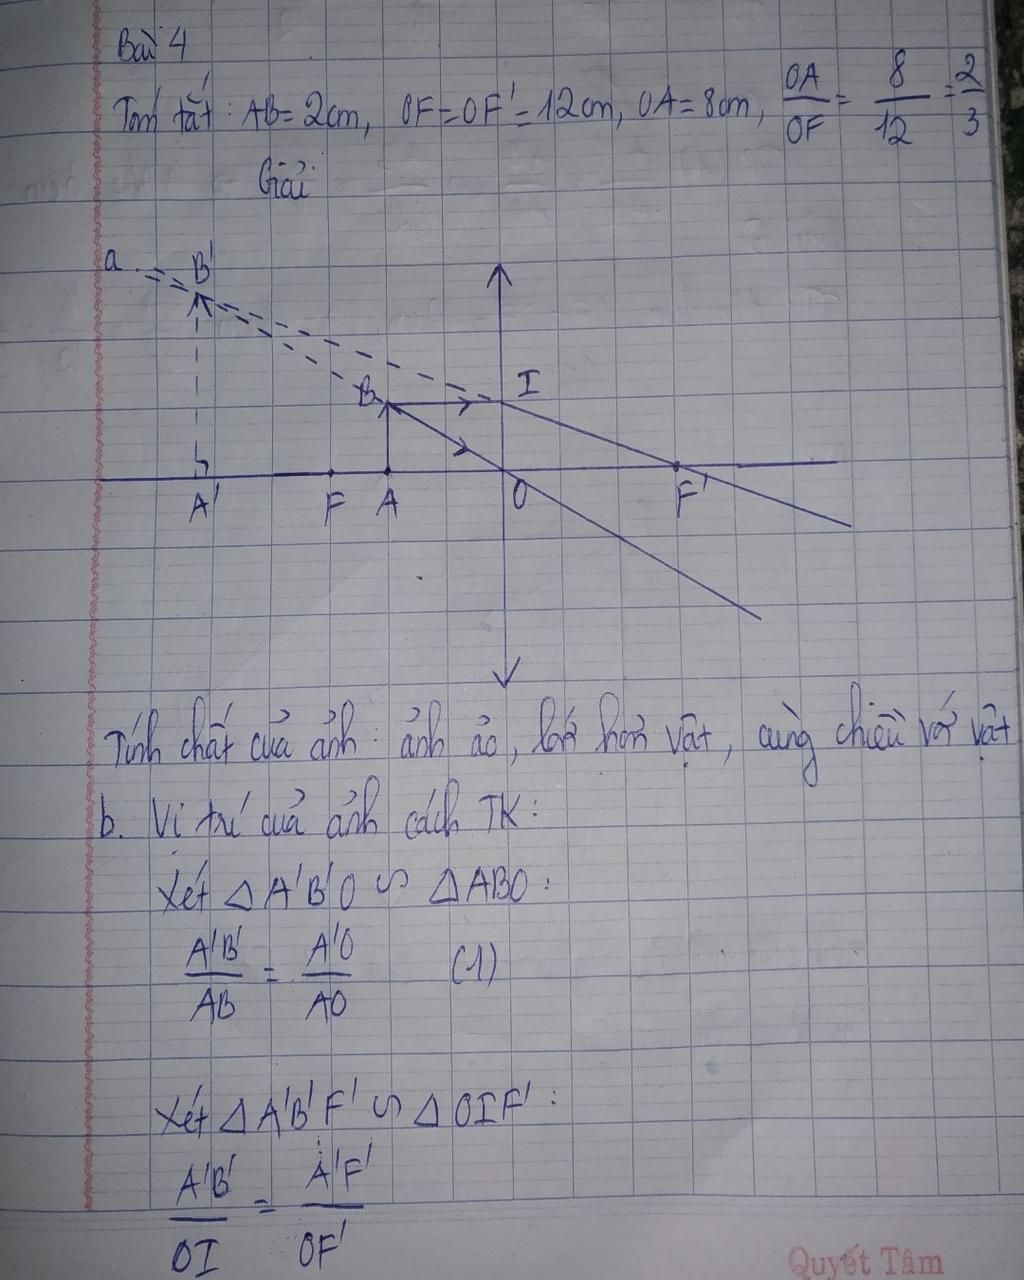 Bài 4
Tóm tắt: AB = 2cm, OF = OF' = 12cm, OA = 8cm, OA/OF = 8/12 = 2/3
Giải
a.
B'
I
B
A' F A O F'
Tính chất của ảnh: ảnh ảo, lớn hơn vật, cùng chiều với vật
b. Vị trí của ảnh cách TK:
Xét Δ A'B'O ∽ Δ ABO:
A'B'/AB = A'O/AO (1)
Xét Δ A'B'F' ∽ Δ OIF':
A'B'/OI = A'F'/OF'
Quyết Tâm